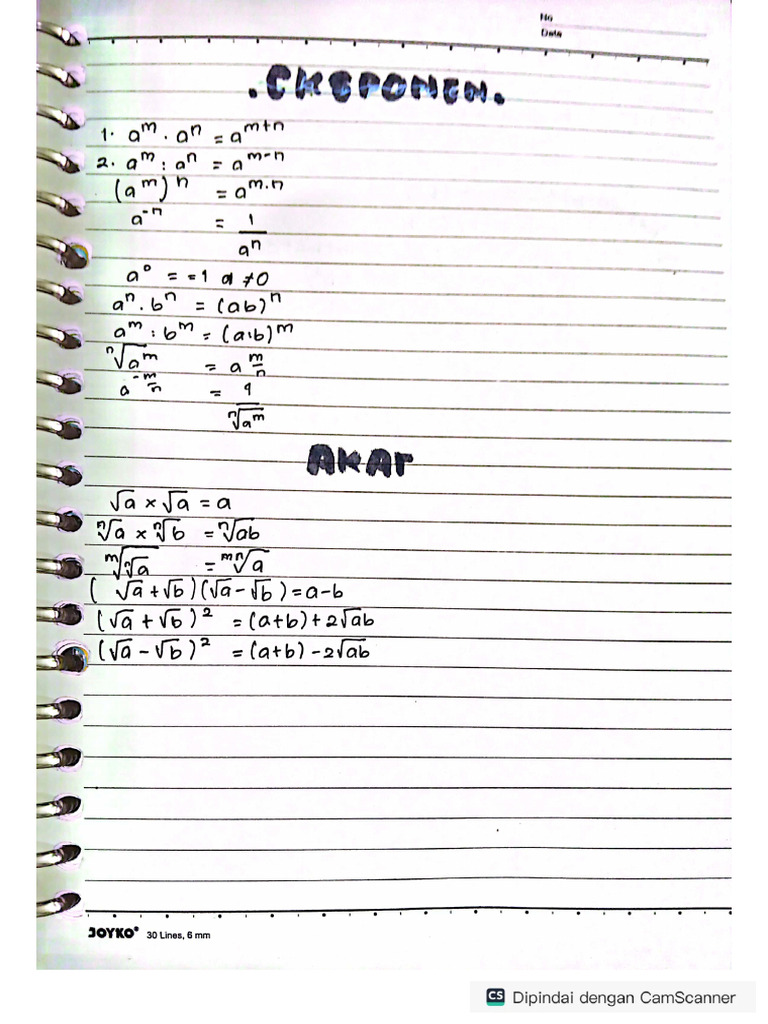 No
Date
. EKSPONEN.
1. a^m . a^n = a^m+n
2. a^m : a^n = a^m-n
(a^m)^n = a^m.n
a^-n = 1/a^n
a^0 = = 1 a ≠0
a^n . b^n = (ab)^n
a^m : b^m = (a:b)^m
ⁿ√a^m = a^m/n
a^-m/n = 1/ⁿ√a^m
AKAr
√a × √a = a
ⁿ√a × ⁿ√b = ⁿ√ab
ᵐ√ⁿ√a = ᵐⁿ√a
( √a + √b ) (√a - √b ) = a-b
(√a + √b )² = (a+b) + 2√ab
(√a - √b )² = (a+b) - 2√ab
JOYKO® 30 Lines, 6 mm
CS Dipindai dengan CamScanner